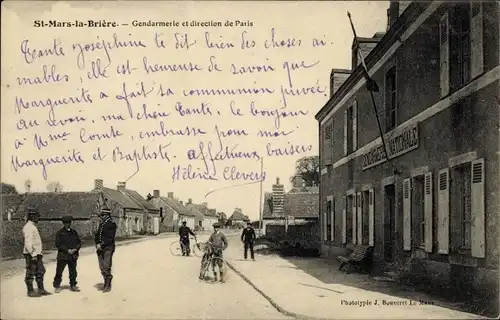 St-Mars-la-Brière. - Gendarmerie et direction de Paris
Tante Joséphine te dit bien des choses ai-
mables, elle est heureuse de savoir que
Marguerite a fait sa communion privée
au revoir, ma chère Tante, le bonjour
à Mme Comte, embrasse pour moi
Marguerite et Baptiste.
affectueux baisers
Hélène Clevers
GENDARMERIE NATIONALE
Phototypie J. Bouveret Le Mans